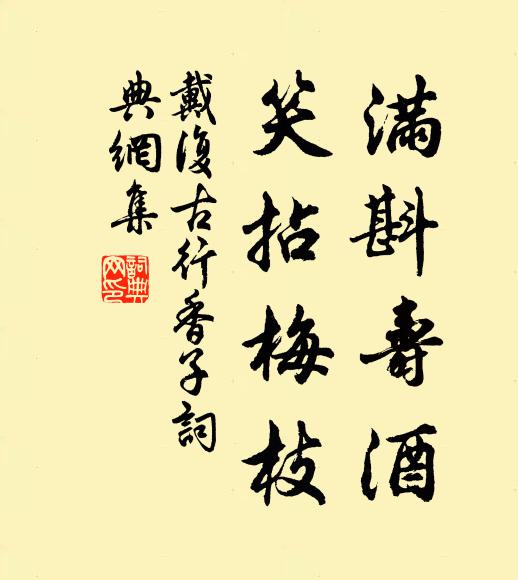 滿斟壽酒
笑拈梅枝
戴復古行香子詞
典網集
詞典網印